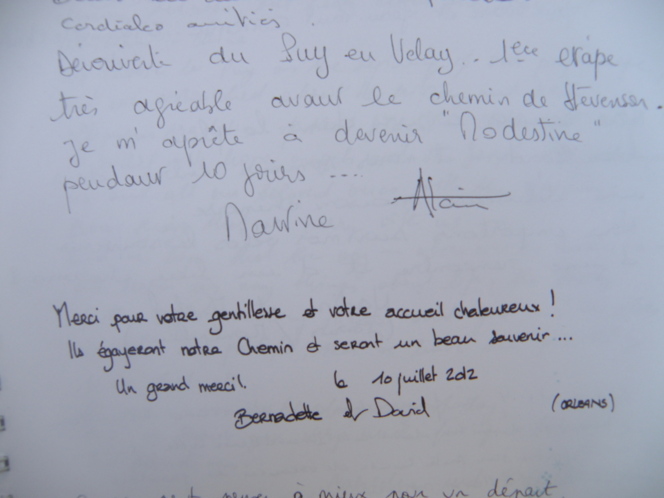 Cordiales amitiés.
Découverte du Puy en Velay.. 1ère etape
très agréable avant le chemin de Stevenson.
Je m'aprête à devenir "Modestine"
pendant 10 jours ...
Martine Alain
Merci pour votre gentillesse et votre accueil chaleureux !
Ils égayeront notre Chemin et seront un beau souvenir...
Un grand merci. le 10 juillet 2012
Bernadette et David (ORLEANS)
à mieux pour un départ